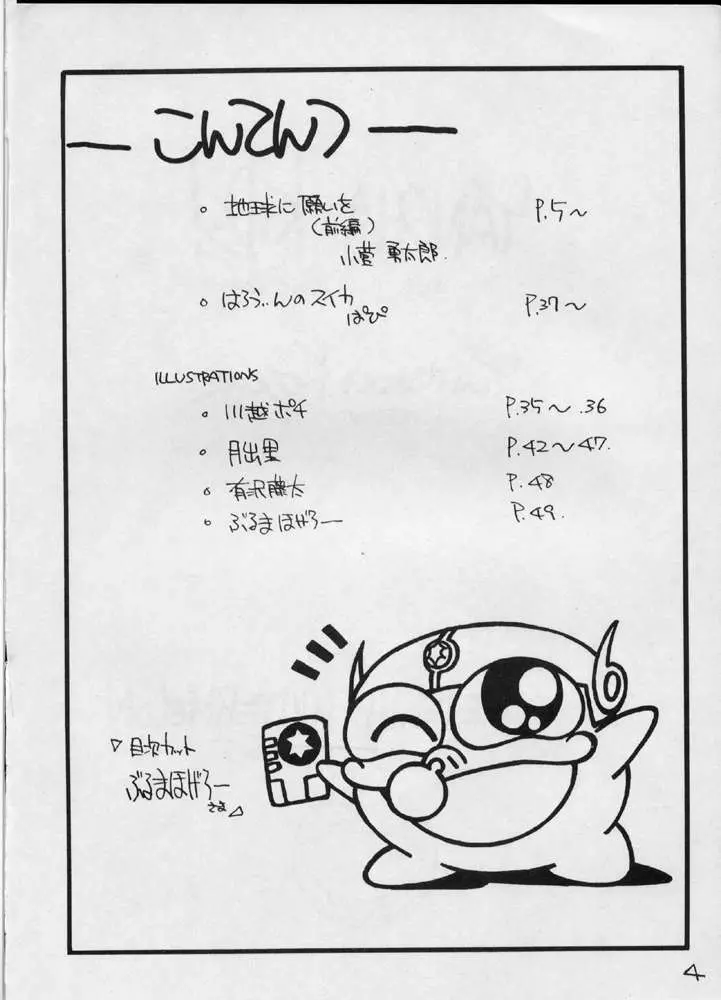 こんてんつ
。地球に願いを P.5～
(前編)
小菅 勇太郎.
。はろうぃんのスイカ P.37～
ぱぴ
ILLUSTRATIONS
。川越ポチ P.35～.36
。月出里 P.42～47.
。有沢藤太 P.48
。ぶるまほげろー P.49.
▽目次カット
ぶるまほげろー
さま△
4